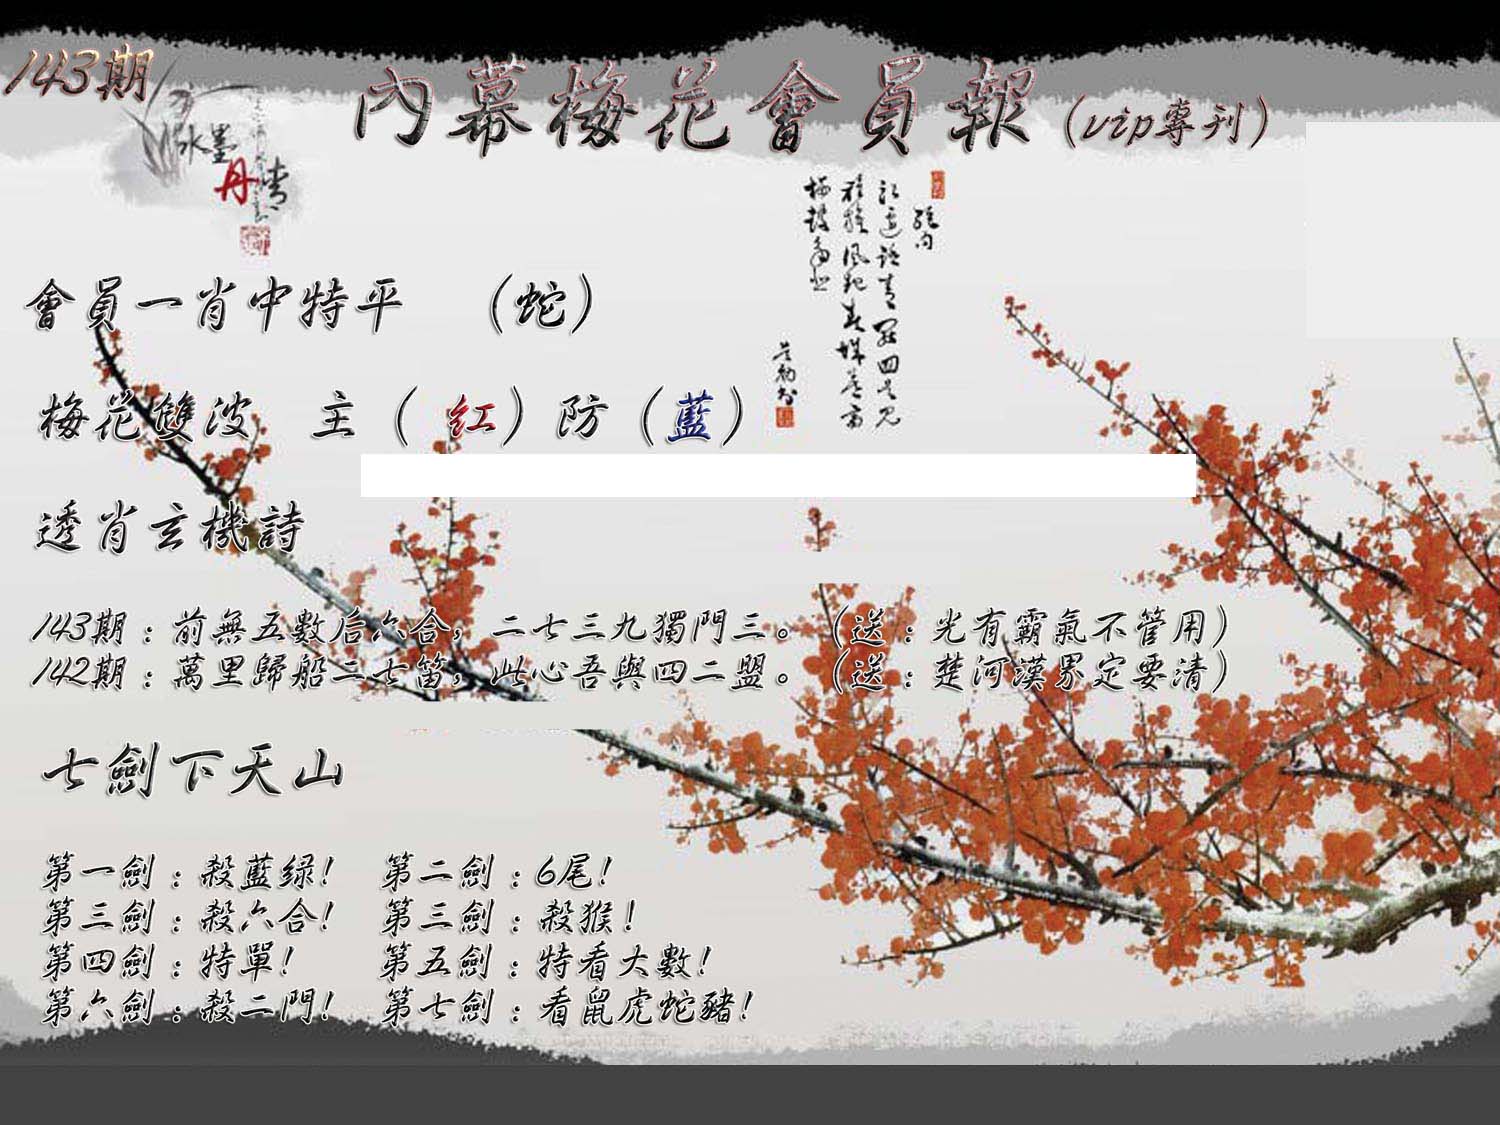 143期
內幕梅花會員報（vip專刊）
水墨
丹青
會員一肖中特平　（蛇）
梅花雙波　主（紅）防（藍）
透肖玄機詩
143期：前無五數后六合，二七三九獨門三。（送：光有霸氣不管用）
142期：萬里歸船二七笛，此心吾與四二盟。（送：楚河漢界定要清）
七劍下天山
第一劍：殺藍绿！　第二劍：6尾！
第三劍：殺六合！　第三劍：殺猴！
第四劍：特單！　第五劍：特看大數！
第六劍：殺二門！　第七劍：看鼠虎蛇豬！